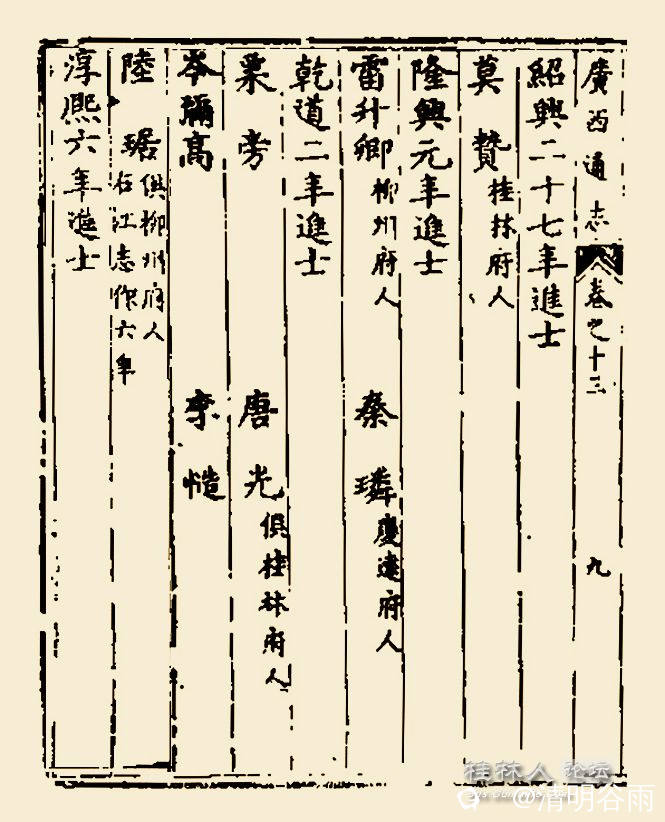 廣西通志 卷之十三 九
紹興二十七年進士
莫贊 桂林府人
隆興元年進士
雷升卿 柳州府人 秦璘 慶遠府人
乾道二年進士
栗旁 唐光 俱桂林府人
岑彌高 李慥
陸琚 俱柳州府人 右江志作六年
淳熙六年進士
桂林人论坛
@清明谷雨